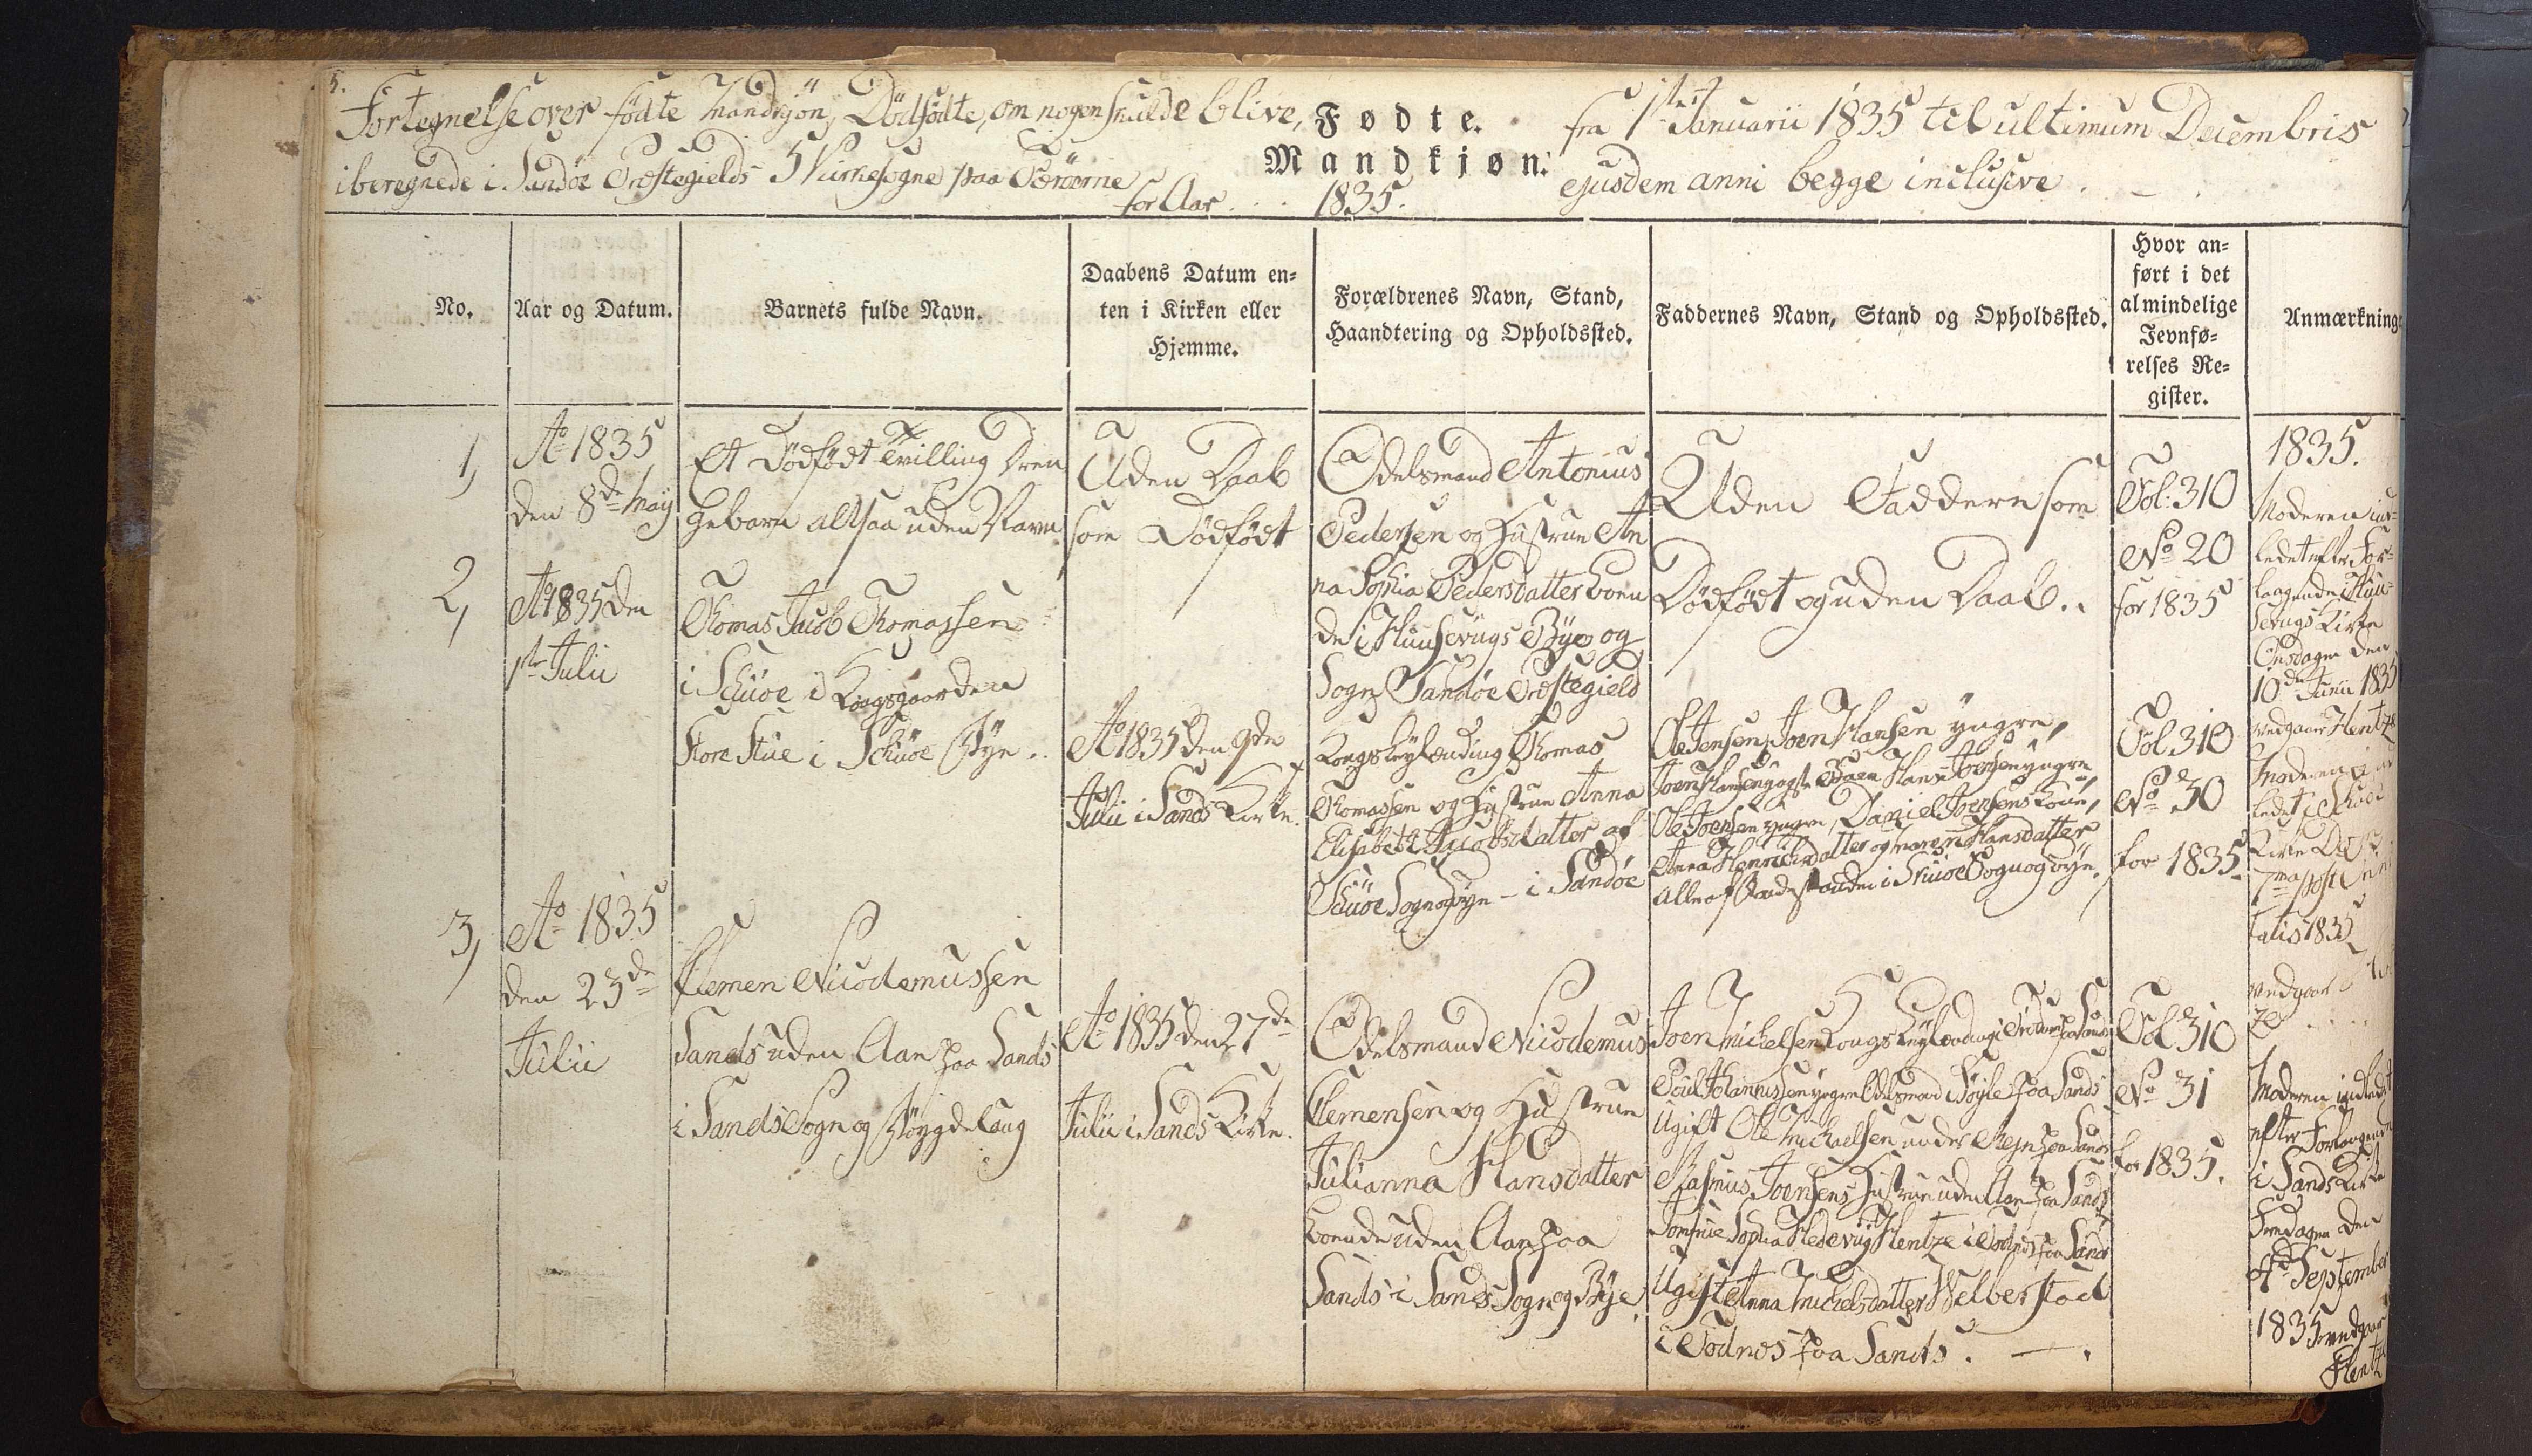 5.
Fortegnelse over fødte Mandkjön, Dødfødte, om nogen skulde blive,
iberegnede i Sandöe Præstegields 5 Kirkesogne paa Færöerne
for Aar . . . 1835.
Fødte.
Mandkjøn.
fra 1ste Januarii 1835 til ultimum Decembris
ejusdem anni begge inclusive.
No.
Aar og Datum.
Barnets fulde Navn.
Daabens Datum en-
ten i Kirken eller
Hjemme.
Forældrenes Navn, Stand,
Haandtering og Opholdssted.
Faddernes Navn, Stand og Opholdssted.
Hvor an-
ført i det
almindelige
Jevnfø-
relses Re-
gister.
Anmærkning
1,
Ao 1835
den 8de Maÿ
Et Dödfödt Tvilling Dren
gebarn altsaa uden Navn
Uden Daab
som Dödfödt
Odelsmand Antonius
Pedersen og Hustrue An
na Sophia Pedersdatter boen
de i Huusevügs Bÿe og
Sogn Sandöe Præstegield
Uden Faddere som
Dödfödt og uden Daab.
Fol: 310
No 20
for 1835
1835.
Moderen ind-
ledet efter For-
langende i Huu-
sevugs Kirke
Onsdagen den
10de Junii 1835
vedgaar Hentze
2,
Ao 1835 den
1ste Julii
Thomas Jacob Thomassen
i Schüoe i Kongsgaarden
Store Stüe i Schüoe Bÿe.
Ao 1835 den 9de
Julii i Sands Kirke.
Kongsleÿlænding Thomas
Thomassen og Hustrue Anna
Elisabeth Jacobsdatter af
Schüoe Sogn og Bÿe - i Sandöe
Ole Jensen, Joen Hansen yngre,
Joen Hansen yngste Hans Joensen yngre
Ole Joensen yngre, Daniel Joensens Kone,
Anna Henrichsdatter og Maren Hansdatter
alle af Bondestanden i Skuoe Sogn og Bÿe.
Fol. 310
No 30
for 1835.
Moderen ind
ledet i Skuoe
Kirke
7ma post
tatis 1835
vedgaar
3,
Ao 1835
den 23de
Julii
Clemen Nicodemussen
Sands uden Aan paa Sands
i Sands Sogn og Böygdelaug
Ao 1835 den 27de
Julii i Sands Kirke.
Odelsmand Nicodemus
Clemensen og Hustrue
Julianna Hansdatter
boende uden Aan paa
Sands i Sands Sogn og Bÿe.
Joen Michelsen Kongsleÿlænding i Trödum paa Sands
Poul Johannissen yngre Odelsmand i Böyle paa Sands
Ugift Ole Michaelsen under Reyn paa Sands
Rasmus Joensens Hustrue uden Aan paa Sands
Jomfrue Sophia Hedevig Hentze i Todnes paa Sands
Ugift Anna Michelsdatter Welberstad
i Todnes paa Sands.
Fol. 310
No 31
for 1835.
Moderen indledet
efter Forlangende
i Sands Kirke
Fredagen den
4de September
1835 vedgaar
Hentze